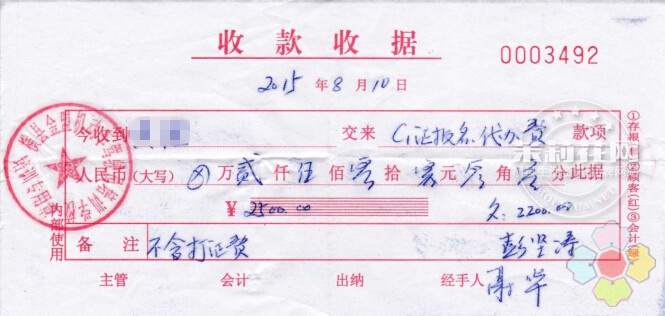 收款收据
0003492
2015 年 8 月 10 日
今收到 交来 C1证报名代办费 款项
人民币(大写) ⊗ 万 贰 仟 伍 佰 零 拾 零 元 零 角 零 分 此据
¥ 2500.00 欠:2200.00
备注 不含打证费 彭坚涛
主管 会计 出纳 经手人
内部使用
①存根(白)②顾客(红)③会计(绿)